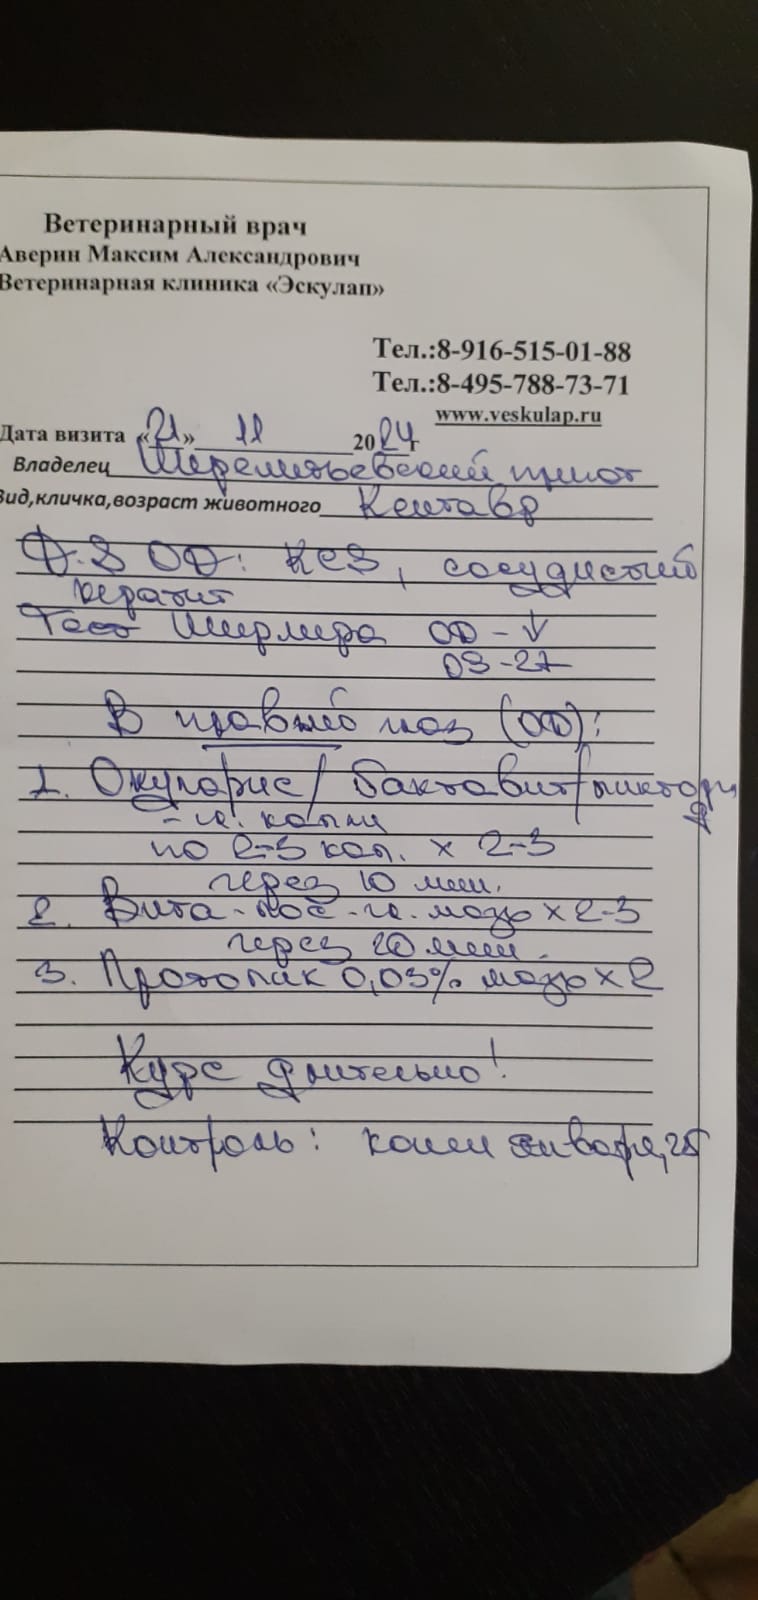 Ветеринарный врач
Аверин Максим Александрович
Ветеринарная клиника «Эскулап»
Тел.:8-916-515-01-88
Тел.:8-495-788-73-71
www.veskulap.ru
Дата визита «21» 11 2024г
Владелец Шереметьевский приют
Вид,кличка,возраст животного Кентавр
D.S OD: КСЗ, сосудистый
кератит
Тест Ширмера OD - ↓
OS - 27
В правый глаз (OD):
1. Окуларис/ бактавит/
- гл. капли
по 2-3 кап. х 2-3
через 10 мин.
2. Вита-пос - гл. мазь х 2-3
через 20 мин.
3. Протопик 0,03% мазь х 2
Курс длительно!
Контроль: конец января, 25